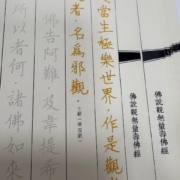 佛說觀無量壽佛經
佛說觀無量壽佛經
當生極樂世界。作是觀
者。名爲邪觀。
佛告阿難。及韋提
所以者何。諸佛如來